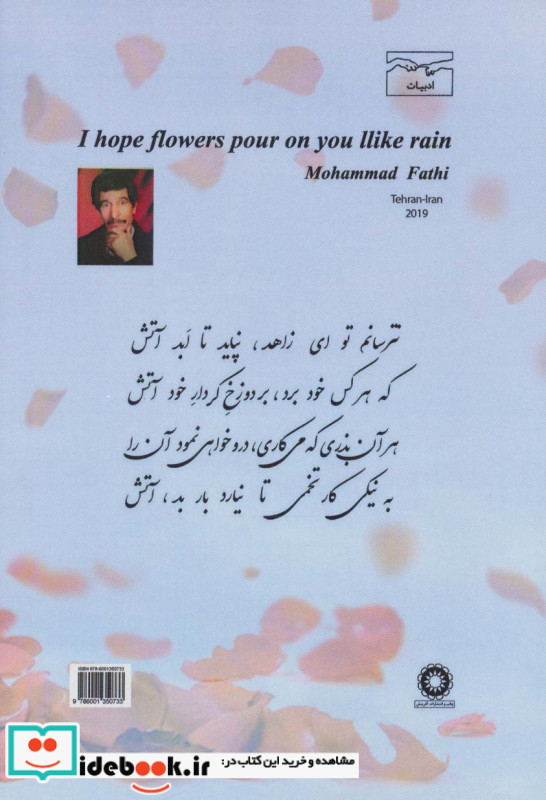 ادبیات
I hope flowers pour on you llike rain
Mohammad Fathi
Tehran-Iran
2019
نترسانم تو ای زاهد، نپاید تا اَبد آتش
که هر کس خود برد، بر دوزخِ کردارِ خود آتش
هر آن بذری که می کاری، درو خواهی نمود آن را
به نیکی کار تخمی تا نیارد بار بد، آتش
ISBN 978-6001350733
9 786001 350733
مشاهده و خرید این کتاب در:
idebook.ir